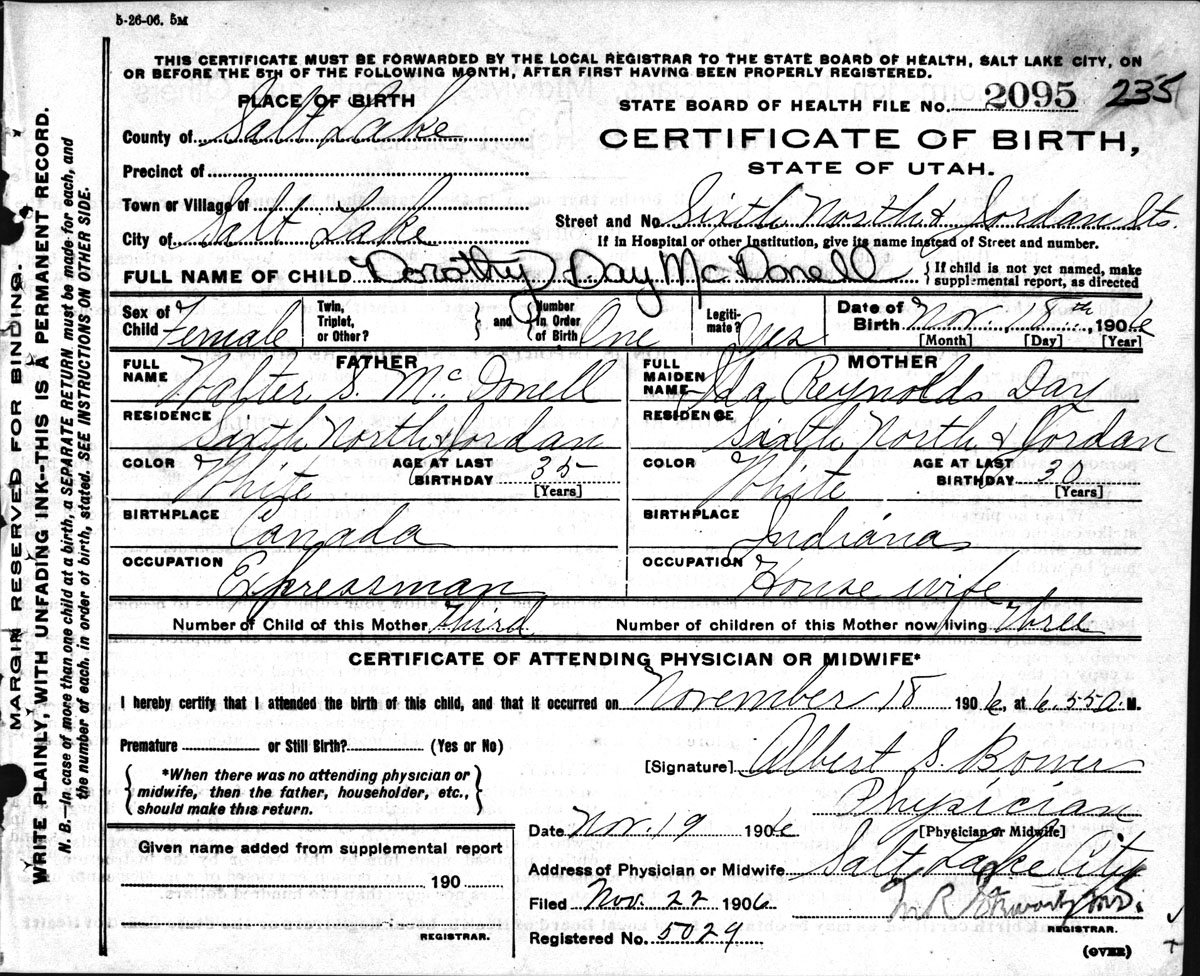 5-26-06. 5M
THIS CERTIFICATE MUST BE FORWARDED BY THE LOCAL REGISTRAR TO THE STATE BOARD OF HEALTH, SALT LAKE CITY, ON
OR BEFORE THE 5TH OF THE FOLLOWING MONTH, AFTER FIRST HAVING BEEN PROPERLY REGISTERED.
PLACE OF BIRTH
STATE BOARD OF HEALTH FILE No. 2095 235
County of Salt Lake
CERTIFICATE OF BIRTH,
STATE OF UTAH.
Precinct of
Town or Village of
Street and No. Sixth North & Jordan Sts.
City of Salt Lake
If in Hospital or other Institution, give its name instead of Street and number.
FULL NAME OF CHILD Dorothy Day McDonell
{If child is not yet named, make
supplemental report, as directed
Sex of Child Female
Twin, Triplet, or Other? } and { Number in Order of Birth One
Legiti- mate? Yes
Date of Birth Nov. 18th, 1906
[Month] [Day] [Year]
FATHER
FULL NAME Walter S. McDonell
RESIDENCE Sixth North & Jordan
COLOR White AGE AT LAST BIRTHDAY 35 [Years]
BIRTHPLACE Canada
OCCUPATION Expressman
MOTHER
FULL MAIDEN NAME Ida Reynolds Day
RESIDENCE Sixth North & Jordan
COLOR White AGE AT LAST BIRTHDAY 30 [Years]
BIRTHPLACE Indiana
OCCUPATION House wife
Number of Child of this Mother Third Number of children of this Mother now living Three
CERTIFICATE OF ATTENDING PHYSICIAN OR MIDWIFE*
I hereby certify that I attended the birth of this child, and that it occurred on November 18 1906, at 6.55 a. M.
Premature or Still Birth? (Yes or No)
{*When there was no attending physician or
midwife, then the father, householder, etc.,
should make this return.}
[Signature] Albert S. Bower
Physician
[Physician or Midwife]
Date Nov. 19 1906
Address of Physician or Midwife Salt Lake City
Filed Nov. 22 1906
REGISTRAR.
Registered No. 5029
(OVER)
Given name added from supplemental report
190
REGISTRAR.
MARGIN RESERVED FOR BINDING.
WRITE PLAINLY, WITH UNFADING INK--THIS IS A PERMANENT RECORD.
N. B.—In case of more than one child at a birth, a SEPARATE RETURN must be made for each, and
the number of each, in order of birth, stated. SEE INSTRUCTIONS ON OTHER SIDE.